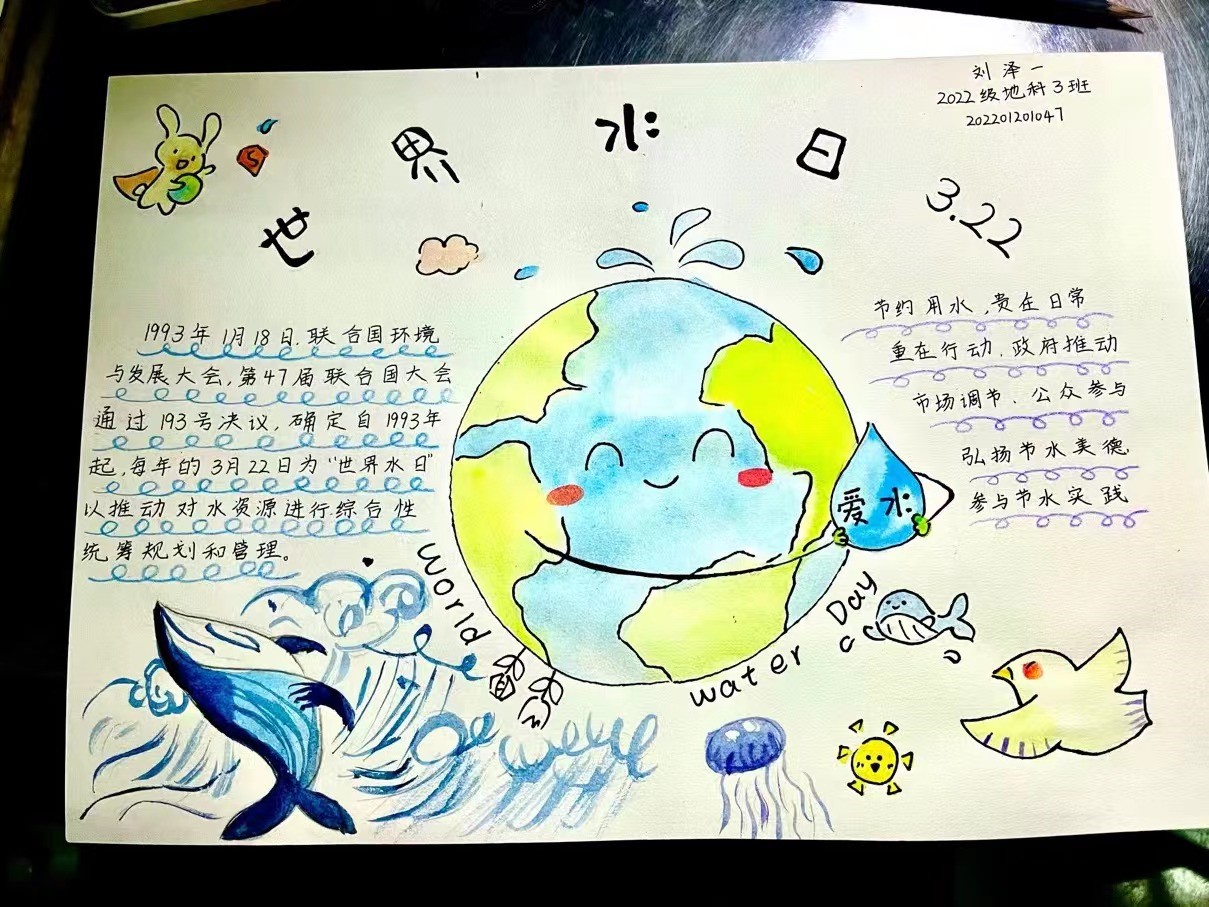 刘泽一
2022级地科3班
202201201047
世界水日
3.22
1993年1月18日.联合国环境
与发展大会,第47届联合国大会
通过193号决议,确定自1993年
起,每年的3月22日为"世界水日"
以推动对水资源进行综合性
统筹规划和管理。
节约用水,贵在日常
重在行动.政府推动
市场调节、公众参与
弘扬节水美德.
参与节水实践
爱水
World water Day
S